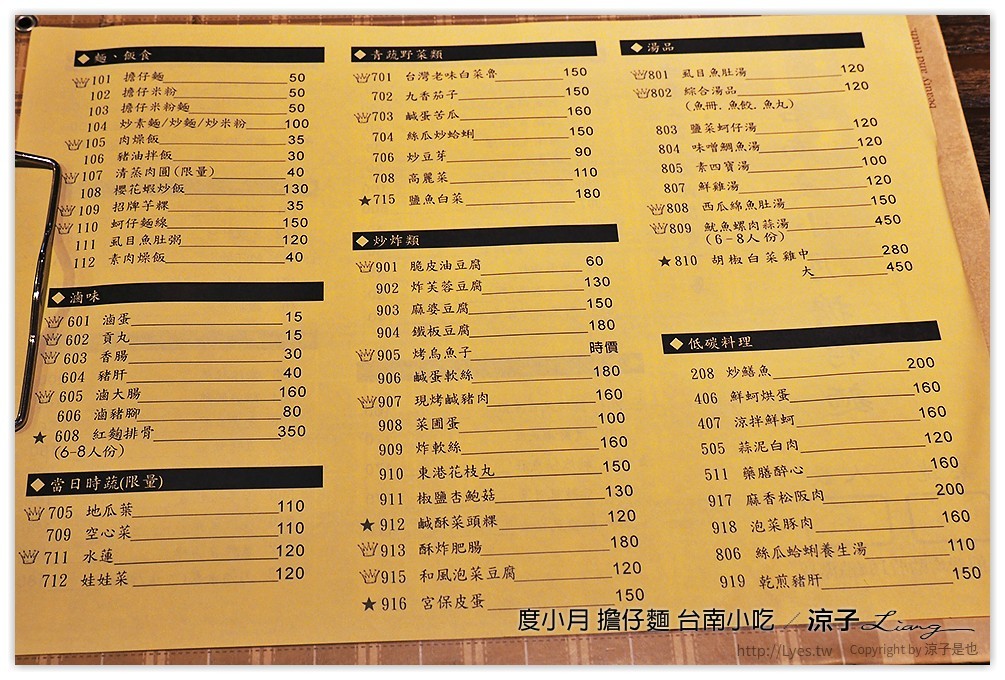 ◆麵、飯食
101 擔仔麵 50
102 擔仔米粉 50
103 擔仔米粉麵 50
104 炒素麵/炒麵/炒米粉 100
105 肉燥飯 35
106 豬油拌飯 30
107 清蒸肉圓(限量) 40
108 櫻花蝦炒飯 130
109 招牌芋粿 35
110 蚵仔麵線 150
111 虱目魚肚粥 120
112 素肉燥飯 40
◆滷味
601 滷蛋 15
602 貢丸 15
603 香腸 30
604 豬肝 40
605 滷大腸 160
606 滷豬腳 80
★ 608 紅麴排骨 350
(6-8人份)
◆當日時蔬(限量)
705 地瓜葉 110
709 空心菜 110
711 水蓮 120
712 娃娃菜 120
◆青蔬野菜類
701 台灣老味白菜魯 150
702 九香茄子 150
703 鹹蛋苦瓜 160
704 絲瓜炒蛤蜊 150
706 炒豆芽 90
708 高麗菜 110
★715 鹽魚白菜 180
◆炒炸類
901 脆皮油豆腐 60
902 炸芙蓉豆腐 130
903 麻婆豆腐 150
904 鐵板豆腐 180
905 烤烏魚子 時價
906 鹹蛋軟絲 180
907 現烤鹹豬肉 160
908 菜圃蛋 100
909 炸軟絲 160
910 東港花枝丸 150
911 椒鹽杏鮑菇 130
★912 鹹酥菜頭粿 120
913 酥炸肥腸 180
915 和風泡菜豆腐 120
★916 宮保皮蛋 150
◆湯品
801 虱目魚肚湯 120
802 綜合湯品 120
(魚冊.魚餃.魚丸)
803 鹽菜蚵仔湯 120
804 味噌鯛魚湯 120
805 素四寶湯 100
807 鮮雞湯 120
808 西瓜綿魚肚湯 150
809 魷魚螺肉蒜湯 450
(6-8人份)
★810 胡椒白菜雞中 280
大 450
◆低碳料理
208 炒鱔魚 200
406 鮮蚵烘蛋 160
407 涼拌鮮蚵 160
505 蒜泥白肉 120
511 藥膳醉心 160
917 麻香松阪肉 200
918 泡菜豚肉 160
806 絲瓜蛤蜊養生湯 110
919 乾煎豬肝 150
度小月 擔仔麵 台南小吃 / 涼子 Liang
http://Lyes.tw Copyright by 涼子是也